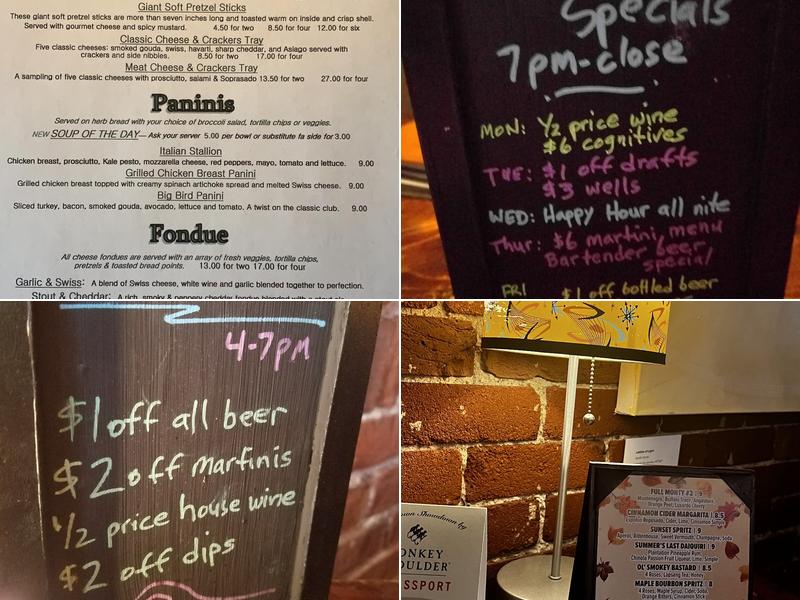 Giant Soft Pretzel Sticks
These giant soft pretzel sticks are more than seven inches long and toasted warm on inside and crisp shell.
Served with gourmet cheese and spicy mustard. 4.50 for two 8.50 for four 12.00 for six
Classic Cheese & Crackers Tray
Five classic cheeses: smoked gouda, swiss, havarti, sharp cheddar, and Asiago served with
crackers and side nibbles. 8.50 for two 17.00 for four
Meat Cheese & Crackers Tray
A sampling of five classic cheeses with prosciutto, salami & Soprasado 13.50 for two 27.00 for four
Paninis
Served on herb bread with your choice of broccoli salad, tortilla chips or veggies.
NEW SOUP OF THE DAY— Ask your server 5.00 per bowl or substitute fa side for 3.00
Italian Stallion
Chicken breast, prosciutto, Kale pesto, mozzarella cheese, red peppers, mayo, tomato and lettuce. 9.00
Grilled Chicken Breast Panini
Grilled chicken breast topped with creamy spinach artichoke spread and melted Swiss cheese. 9.00
Big Bird Panini
Sliced turkey, bacon, smoked gouda, avocado, lettuce and tomato. A twist on the classic club. 9.00
Fondue
All cheese fondues are served with an array of fresh veggies, tortilla chips,
pretzels & toasted bread points. 13.00 for two 17.00 for four
Garlic & Swiss: A blend of Swiss cheese, white wine and garlic blended together to perfection.
Stout & Cheddar: A rich, smoky & peppery cheddar fondue blended with a stout ale
Specials
7pm-close
MON: ½ price wine
$6 cognitives
TUE: $1 off drafts
$3 wells
WED: Happy Hour all nite
Thur: $6 martini menu
Bartender beer
special
FRI $1 off bottled beer
4-7pm
$1 off all beer
$2 off martinis
½ price house wine
$2 off dips
own Showdown by
ONKEY
OULDER
SSPORT
FULL MONTY #2 | 9
Montenegro, Buffalo Trace, Angostura
Orange Peel, Luxardo Cherry
CINNAMON CIDER MARGARITA | 8.5
Espolon Reposado, Cider, Lime, Cinnamon Simple
SUNSET SPRITZ | 9
Aperol, Rittenhouse, Sweet Vermouth, Champagne, Soda
SUMMER'S LAST DAIQUIRI | 9
Plantation Pineapple Rum,
Chinola Passion Fruit Liqueur, Lime, Simple
OL' SMOKEY BASTARD | 8.5
4 Roses, Lapsang Tea, Honey
MAPLE BOURBON SPRITZ | 8
4 Roses, Maple Syrup, Cider, Soda,
Orange Bitters, Cinnamon Stick